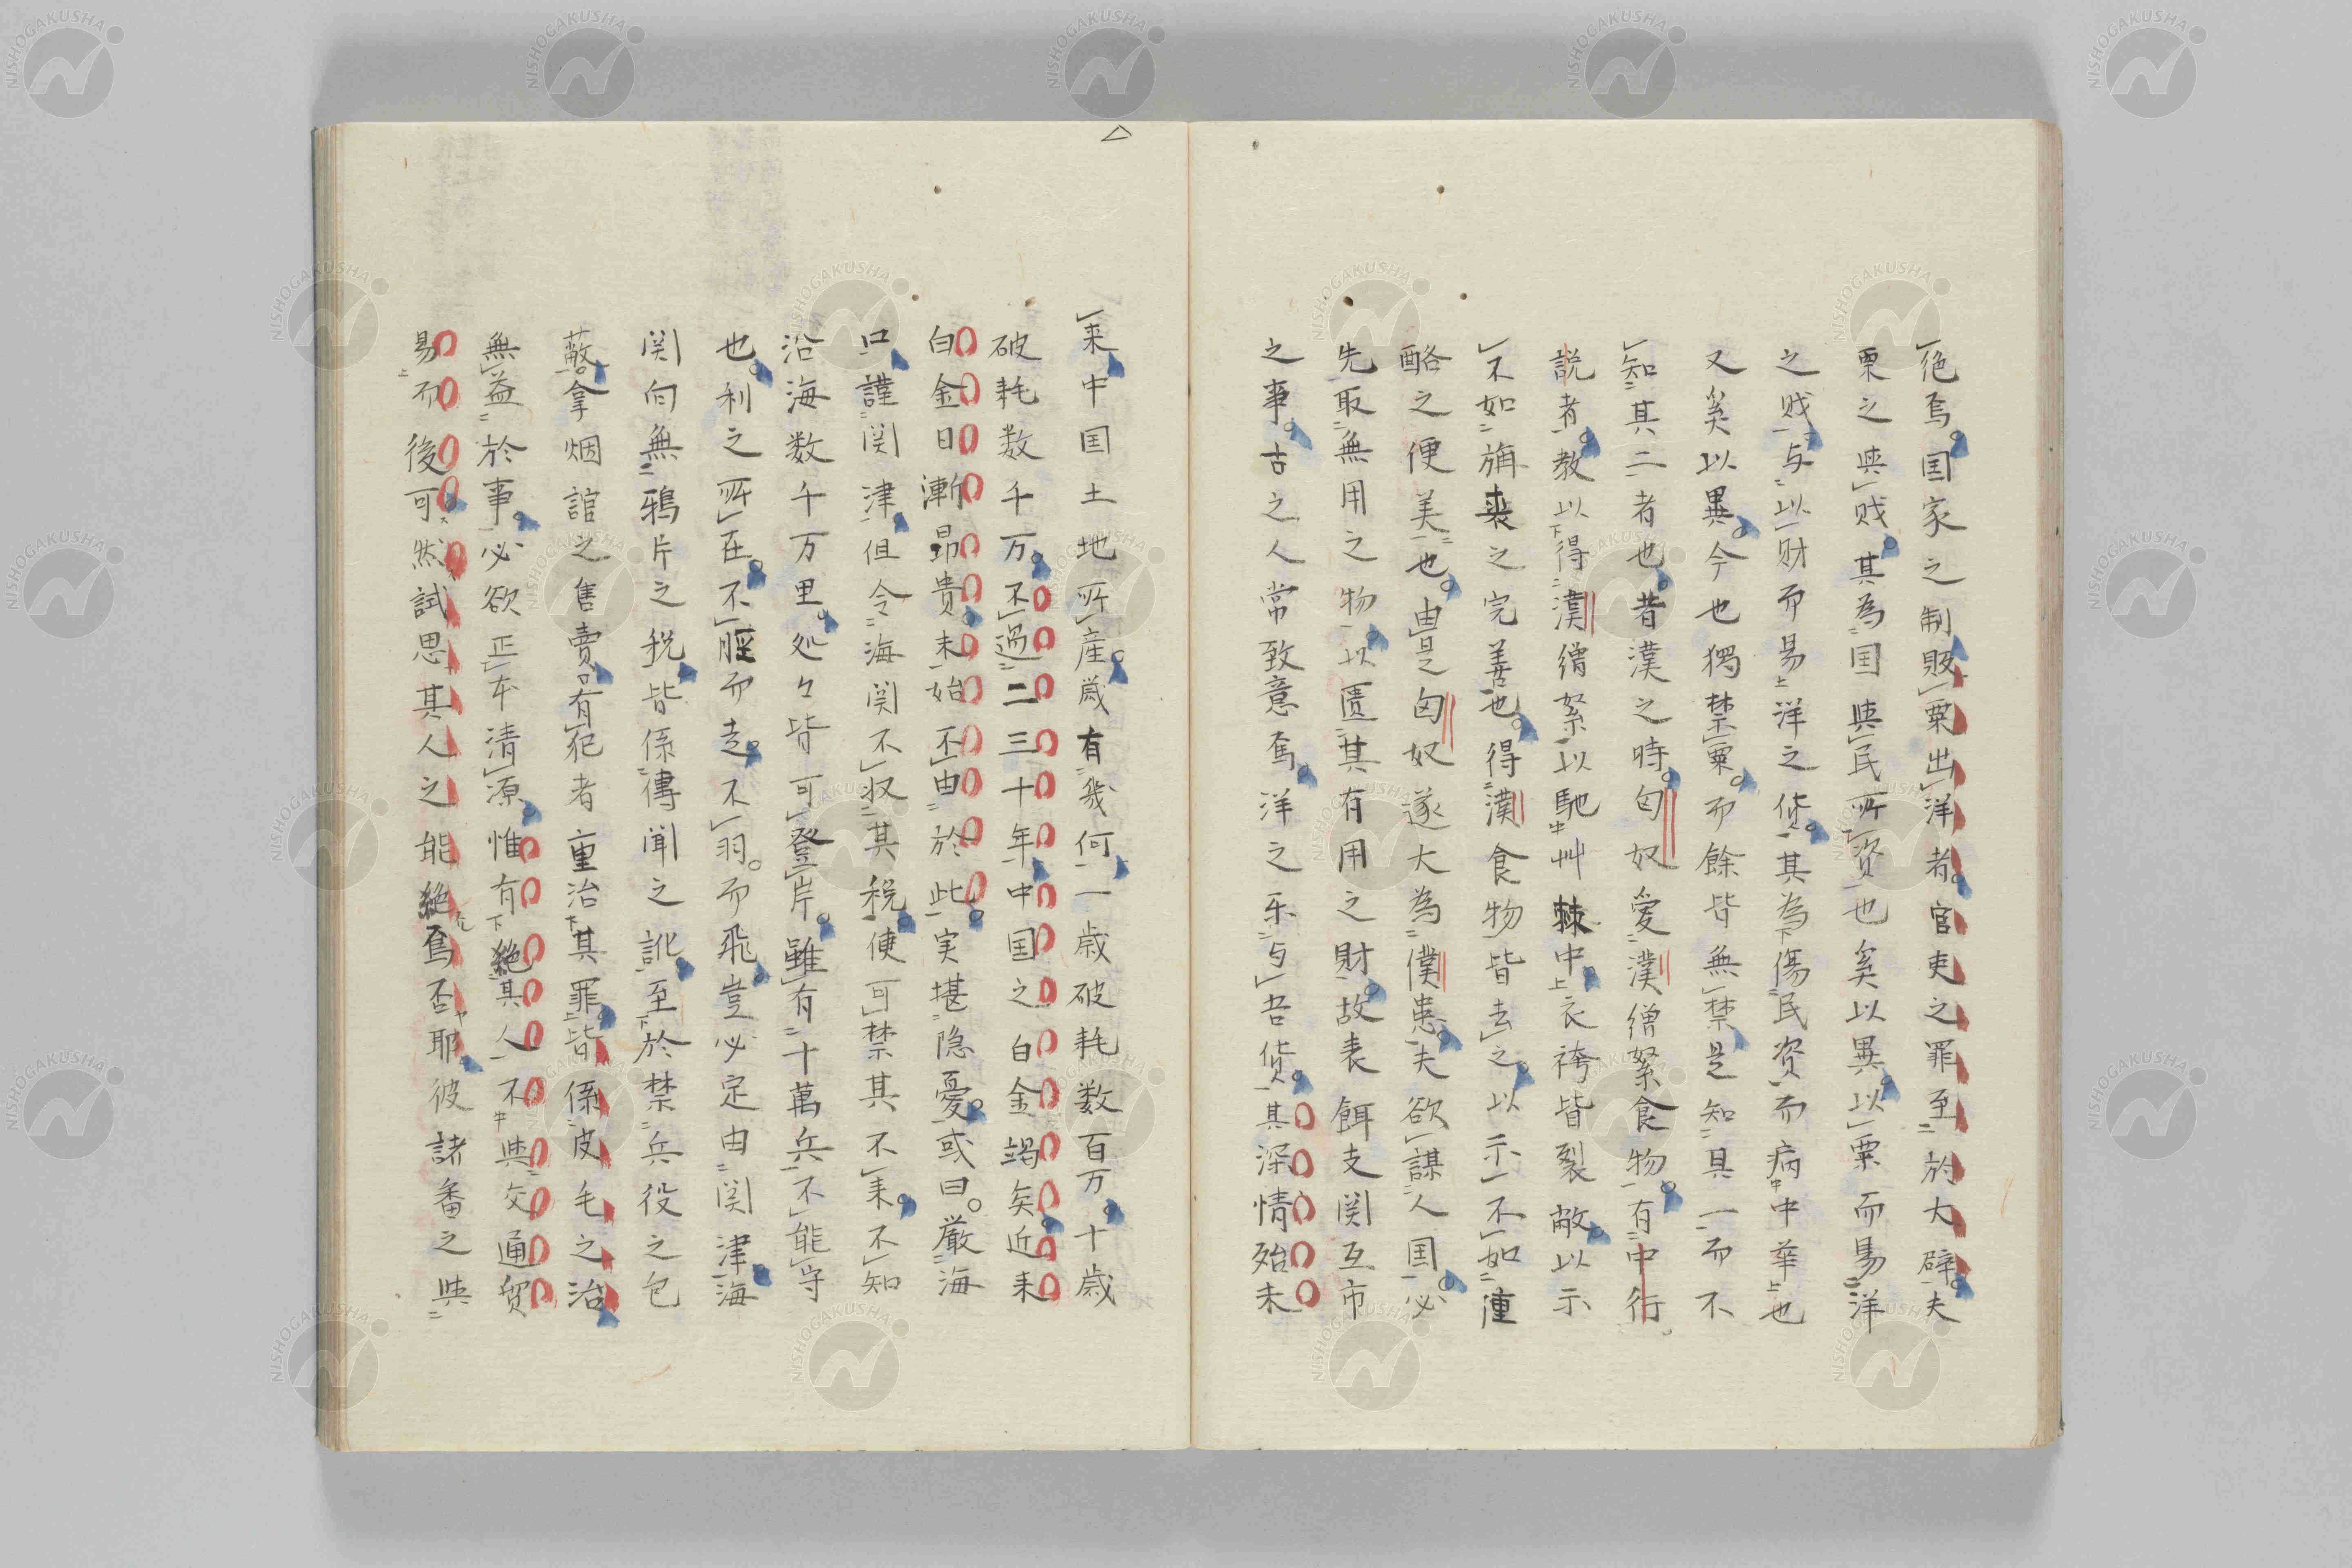 絶焉国家之制販粟出洋者官吏之罪至於大辟夫
粟之与賎其為国与民所資也奚以異以粟而易洋
之賎与以財而易洋之貨其為傷民資而病中華也
又奚以異今也独禁粟而餘皆無禁是知其一而不
知其二者也昔漢之時匈奴愛漢繒絮食物有中行
説者教以得漢繒絮以馳艸棘中衣袴皆裂敝以示
不如旃裘之完善也得漢食物皆去之以示不如湩
酪之便美也由是匈奴遂大為漢患夫欲謀人国必
先取無用之物以匱其有用之財故表餌支関互市
之事古之人常致意焉洋之来与吾貨其深情殆未
来中国土地所産歳有幾何一歳破耗数百万十歳
破耗数千万不過二三十年中国之白金竭矣近来
白金日漸昂貴未始不由於此実堪隠憂或曰厳海
口謹関津但令海関不收其税便可禁其不来不知
沿海数千万里処々皆可登岸雖有十萬兵不能守
也利之所在不脛而走不羽而飛豈必定由関津海
関向無鴉片之税皆係傳聞之訛至於禁兵役之包
蔽拿烟舘之售賣有犯者重治其罪皆係皮毛之治
無益於事必欲正本清源惟有絶其人不与交通貿
易而後可然試思其人之能絶焉否耶彼諸番之与